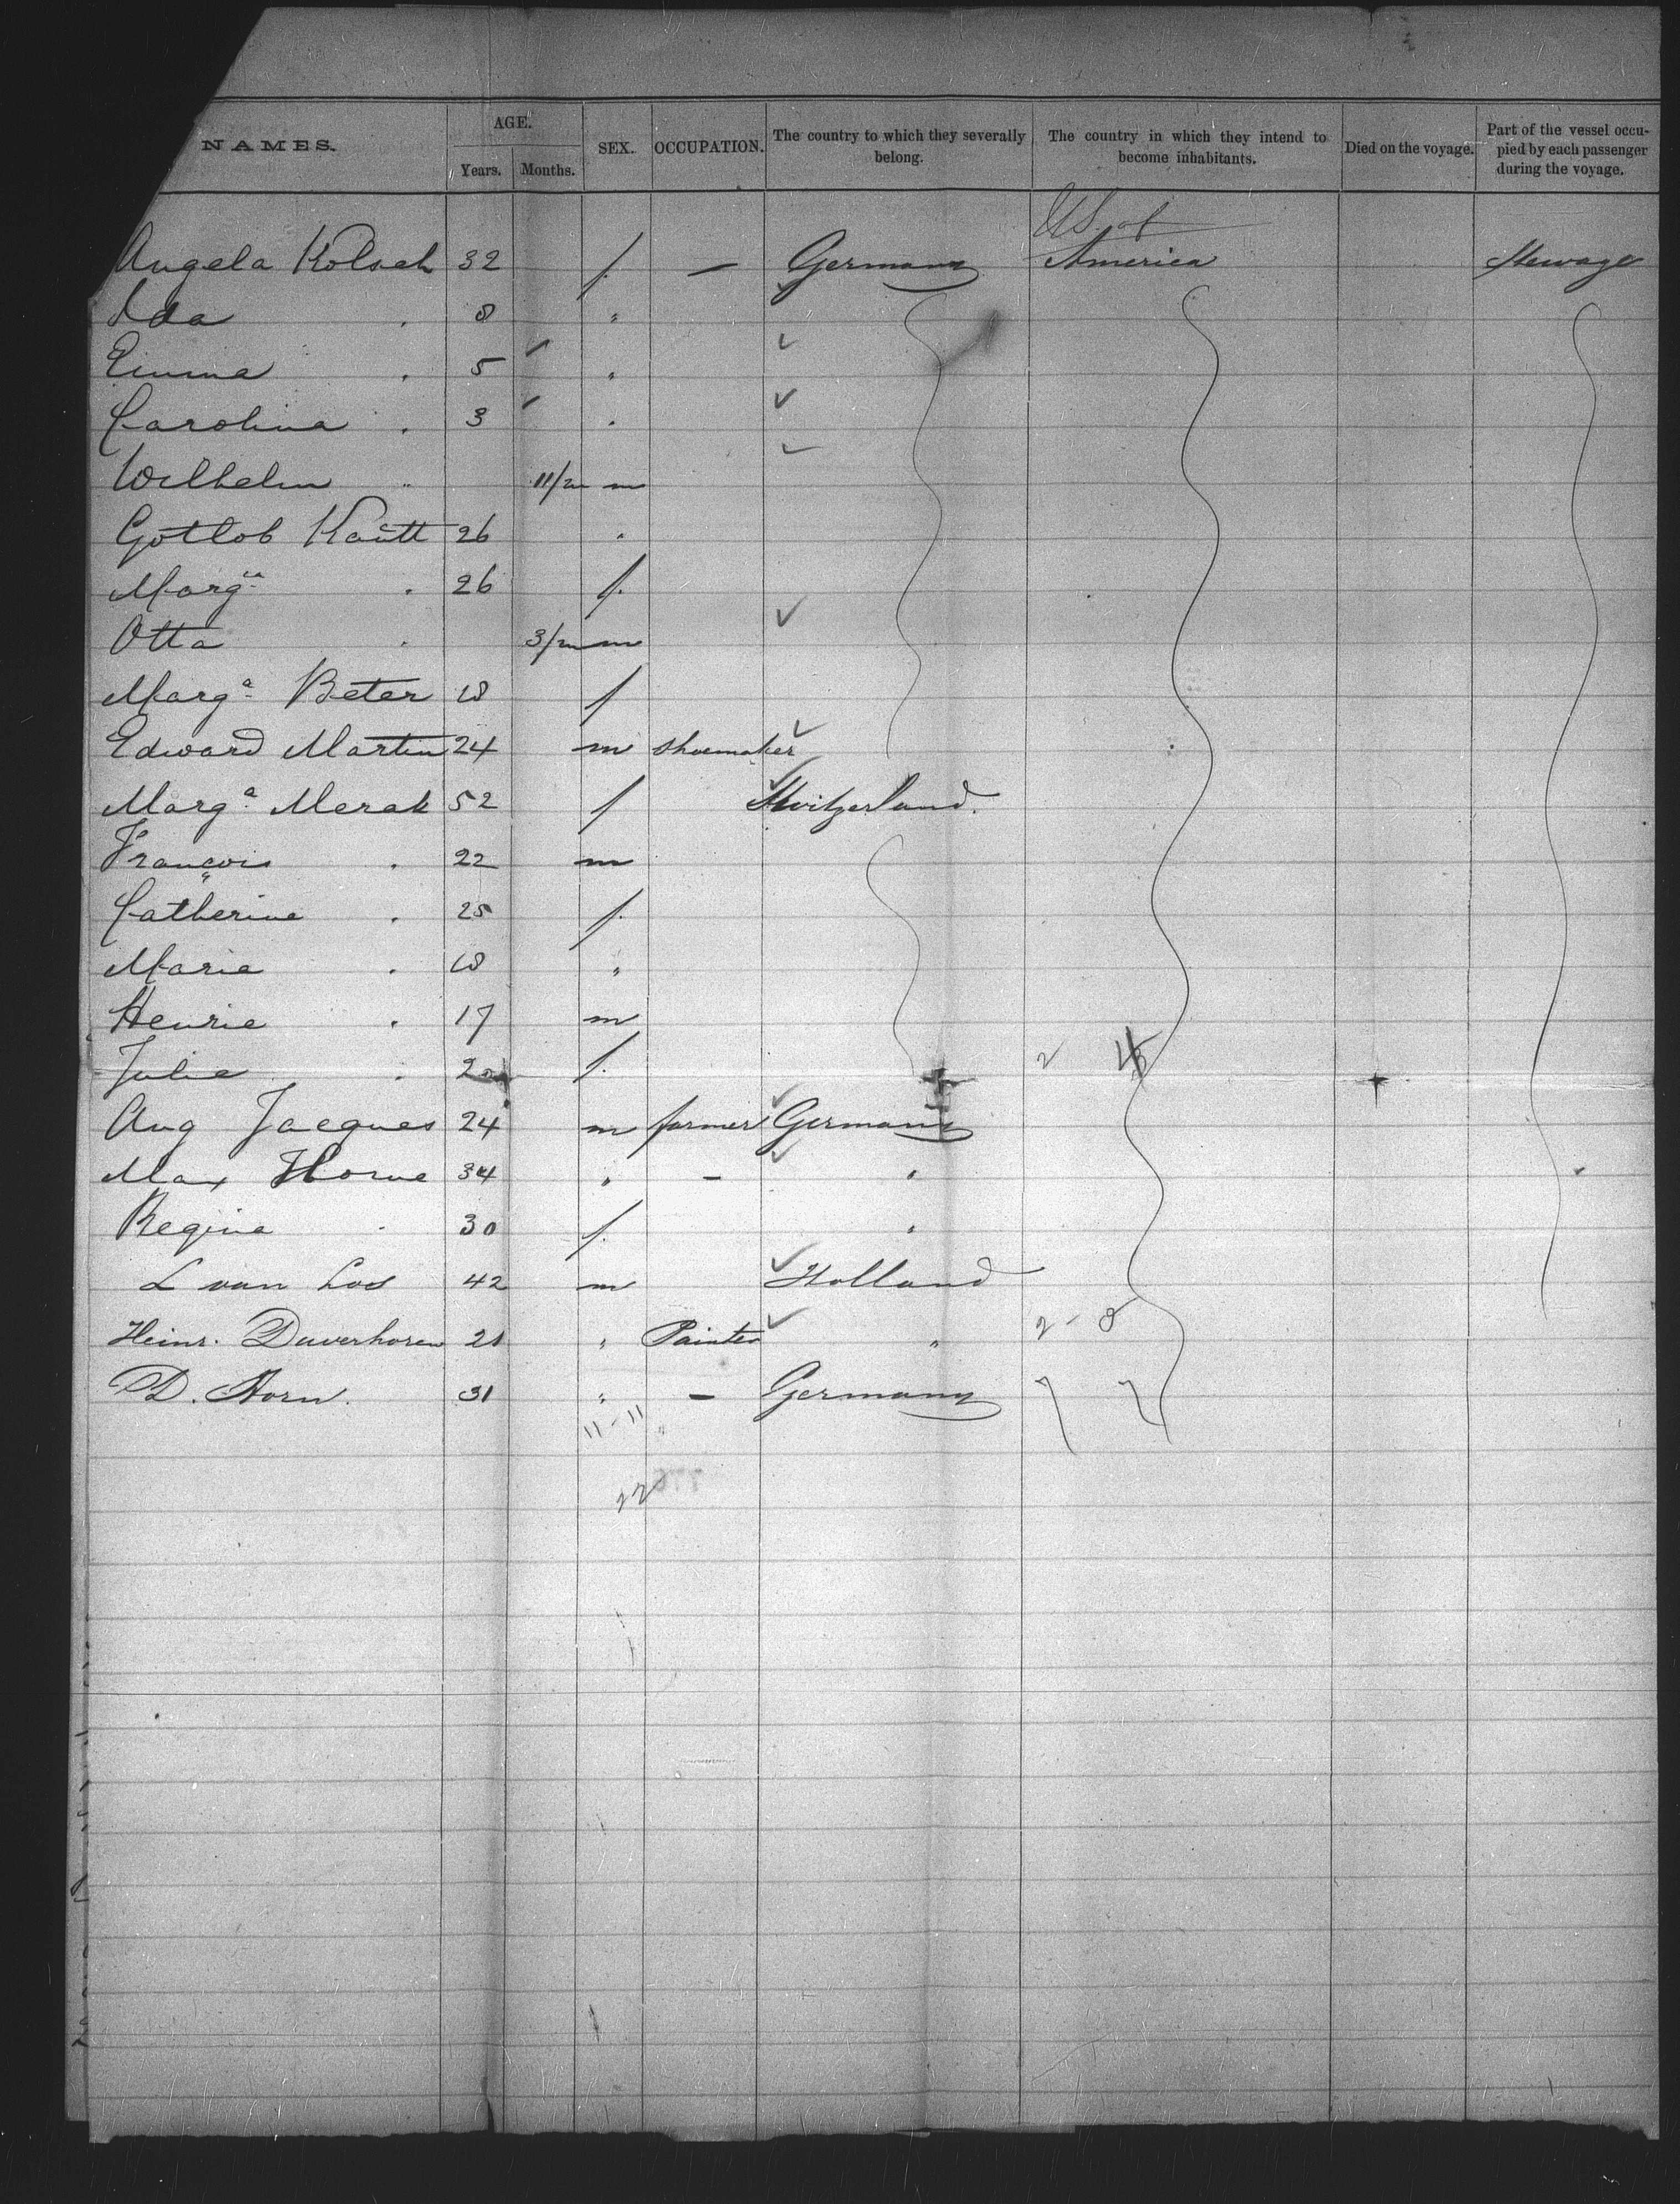 NAMES. AGE. Years. Months. SEX. OCCUPATION. The country to which they severally belong. The country in which they intend to become inhabitants. Died on the voyage. Part of the vessel occupied by each passenger during the voyage.
US of
Angela Kolsch 32 f. — Germany America Steerage
Ida . 8 "
Emma . 5 "
Carolina . 3 "
Wilhelm " 11/m m
Gotlob Kautt 26 "
Marga . 26 f.
Otta . 3/m m
Marga Beter 18 f
Edward Martin 24 m shoemaker
Marga Merak 52 f Switzerland.
François . 22 m
Catherine . 25 f.
Marie . 18 "
Henrie . 17 m
Julie . 20 f. 2
Aug Jacques 24 m farmer Germany
Max Horne 34 " — "
Regina . 30 f. "
L van Loo 42 m Holland
Heinr. Duverhoren 21 " Painter " 2-8
D. Horn. 31 " — Germany 7 7
11-11
22